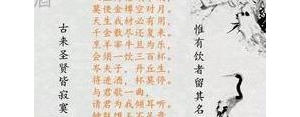 惟有饮者留其名
莫使金樽空对月。
天生我材必有用，
千金散尽还复来。
烹羊宰牛且为乐，
会须一饮三百杯。
岑夫子，丹丘生，
将进酒，杯莫停。
与君歌一曲，
请君为我倾耳听。
古来圣贤皆寂寞